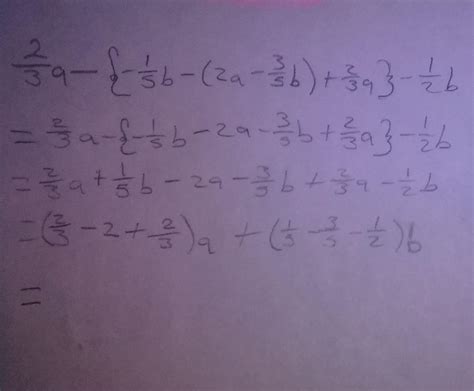 2/3a - {-1/5b - (2a - 3/5b) + 2/3a} - 1/2b
= 2/3a - {-1/5b - 2a - 3/5b + 2/3a} - 1/2b
= 2/3a + 1/5b - 2a - 3/5b + 2/3a - 1/2b
= (2/3 - 2 + 2/3)a + (1/5 - 3/5 - 1/2)b
=